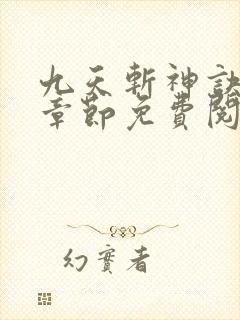 九天斬神訣
章節免費閱
幻實者